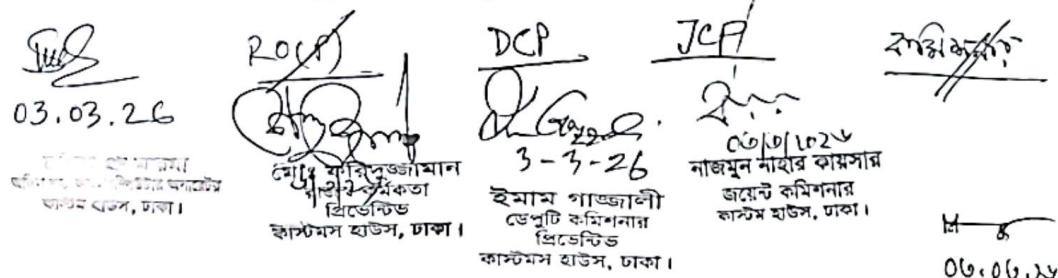 03.03.26
কাস্টম হাউস, ঢাকা।
RO(P)
মোঃ ফরিদুজ্জামান
রাজস্ব কর্মকর্তা
প্রিভেন্টিভ
কাস্টমস হাউস, ঢাকা।
DCP
3-3-26
ইমাম গাজ্জালী
ডেপুটি কমিশনার
প্রিভেন্টিভ
কাস্টমস হাউস, ঢাকা।
JCP
নাজমুন নাহার কায়সার
জয়েন্ট কমিশনার
কাস্টম হাউস, ঢাকা।
কমিশনার